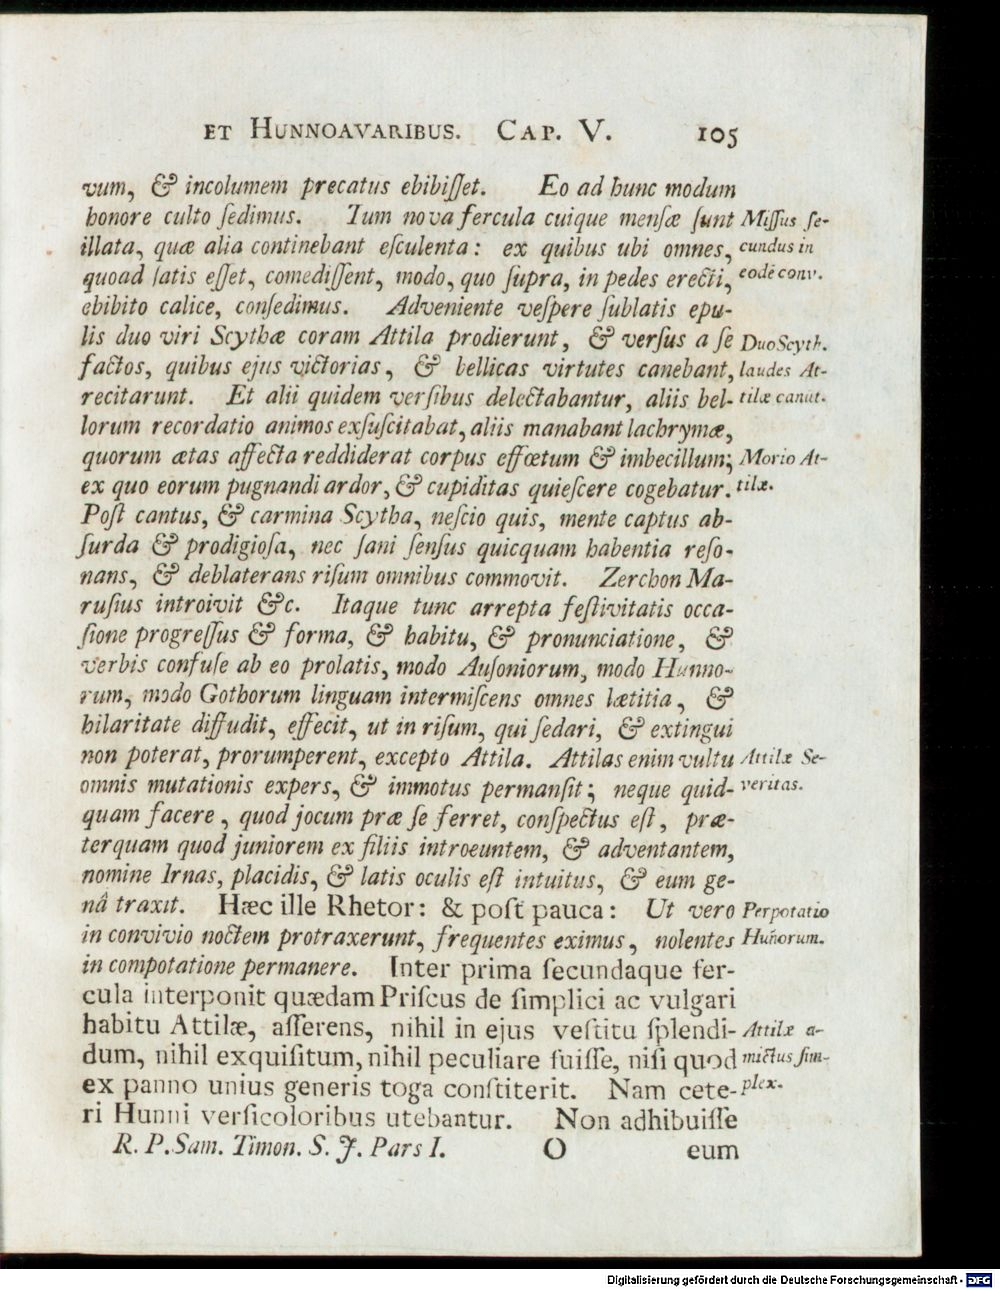 ET HUNNOAVARIBUS. CAP. V. 105
vum, & incolumem precatus ebibiſſet. Eo ad hunc modum
honore culto ſedimus. Tum nova fercula cuique menſæ ſunt
Miſſus ſe-
illata, quæ alia continebant eſculenta: ex quibus ubi omnes,
cundus in
quoad ſatis eſſet, comediſſent, modo, quo ſupra, in pedes erecti,
eodē conv.
ebibito calice, conſedimus. Adveniente veſpere ſublatis epu-
lis duo viri Scythæ coram Attila prodierunt, & verſus a ſe
Duo Scyth.
factos, quibus ejus victorias, & bellicas virtutes canebant,
laudes At-
recitarunt. Et alii quidem verſibus delectabantur, aliis bel-
tilæ canūt.
lorum recordatio animos exſuſcitabat, aliis manabant lachrymæ,
quorum ætas affecta reddiderat corpus effœtum & imbecillum;
Morio At-
ex quo eorum pugnandi ardor, & cupiditas quieſcere cogebatur.
tilæ.
Poſt cantus, & carmina Scytha, neſcio quis, mente captus ab-
ſurda & prodigioſa, nec ſani ſenſus quicquam habentia reſo-
nans, & deblaterans riſum omnibus commovit. Zerchon Ma-
ruſius introivit &c. Itaque tunc arrepta feſtivitatis occa-
ſione progreſſus & forma, & habitu, & pronunciatione, &
verbis confuſe ab eo prolatis, modo Auſoniorum, modo Hunno-
rum, modo Gothorum linguam intermiſcens omnes lætitia, &
hilaritate diffudit, effecit, ut in riſum, qui ſedari, & extingui
non poterat, prorumperent, excepto Attila. Attilas enim vultu
Attilæ Se-
omnis mutationis expers, & immotus permanſit; neque quid-
veritas.
quam facere, quod jocum præ ſe ferret, conſpectus eſt, præ-
terquam quod juniorem ex filiis introeuntem, & adventantem,
nomine Irnas, placidis, & latis oculis eſt intuitus, & eum ge-
nâ traxit. Hæc ille Rhetor: & poſt pauca: Ut vero
Perpotatio
in convivio noctem protraxerunt, frequentes eximus, nolentes
Huñorum.
in compotatione permanere. Inter prima ſecundaque fer-
cula interponit quædam Priſcus de ſimplici ac vulgari
habitu Attilæ, aſſerens, nihil in ejus veſtitu ſplendi-
Attilæ a-
dum, nihil exquiſitum, nihil peculiare fuiſſe, niſi quod
mictus ſim-
ex panno unius generis toga conſtiterit. Nam cete-
plex.
ri Hunni verſicoloribus utebantur. Non adhibuiſſe
R. P. Sam. Timon. S. J. Pars I. O eum
Digitalisierung gefördert durch die Deutsche Forschungsgemeinschaft - DFG